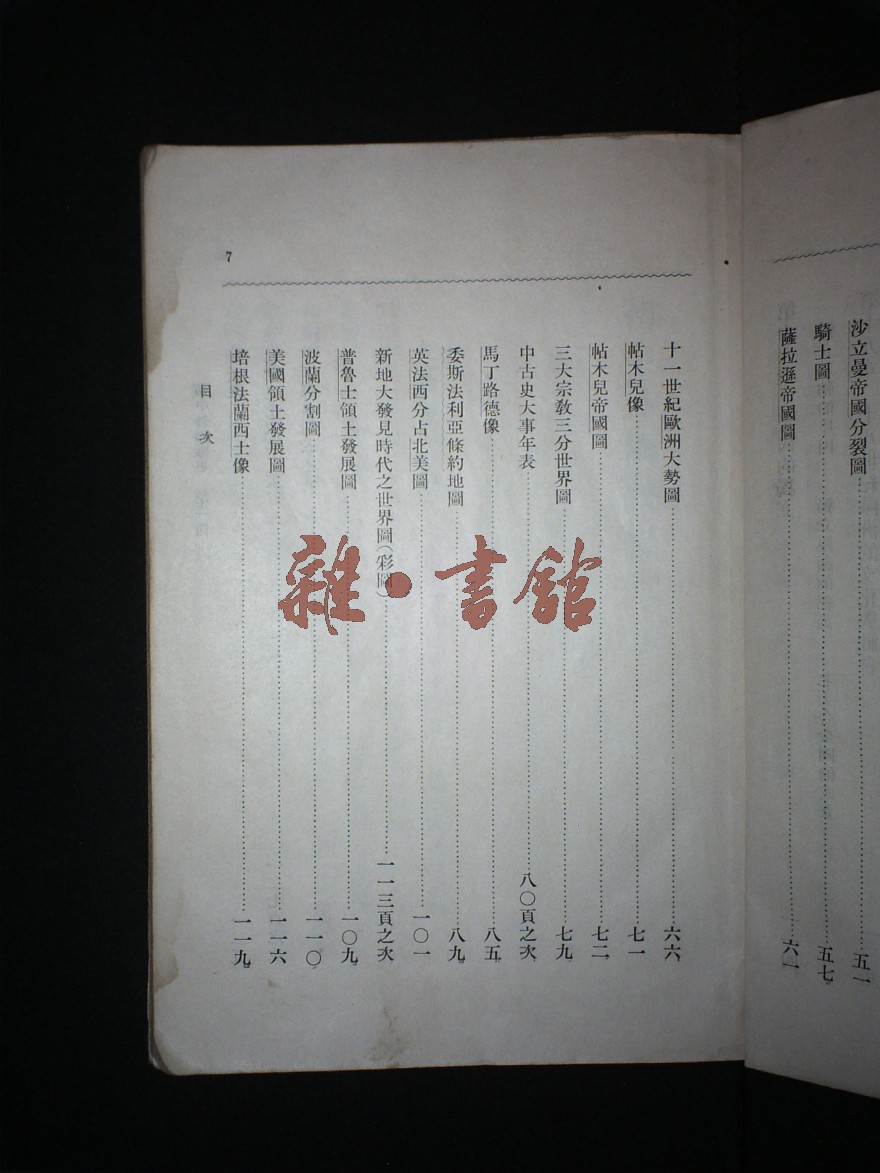 沙立曼帝國分裂圖……五一
騎士圖……五七
薩拉遜帝國圖……六一
十一世紀歐洲大勢圖……六六
帖木兒像……七一
帖木兒帝國圖……七二
三大宗教三分世界圖……七九
中古史大事年表……八〇頁之次
馬丁路德像……八五
委斯法利亞條約地圖……八九
英法西分占北美圖……一〇一
新地大發見時代之世界圖(彩圖)……一一三頁之次
普魯士領土發展圖……一〇九
波蘭分割圖……一一〇
美國領土發展圖……一一六
培根法蘭西士像……一一九
目次
7
雜·書館